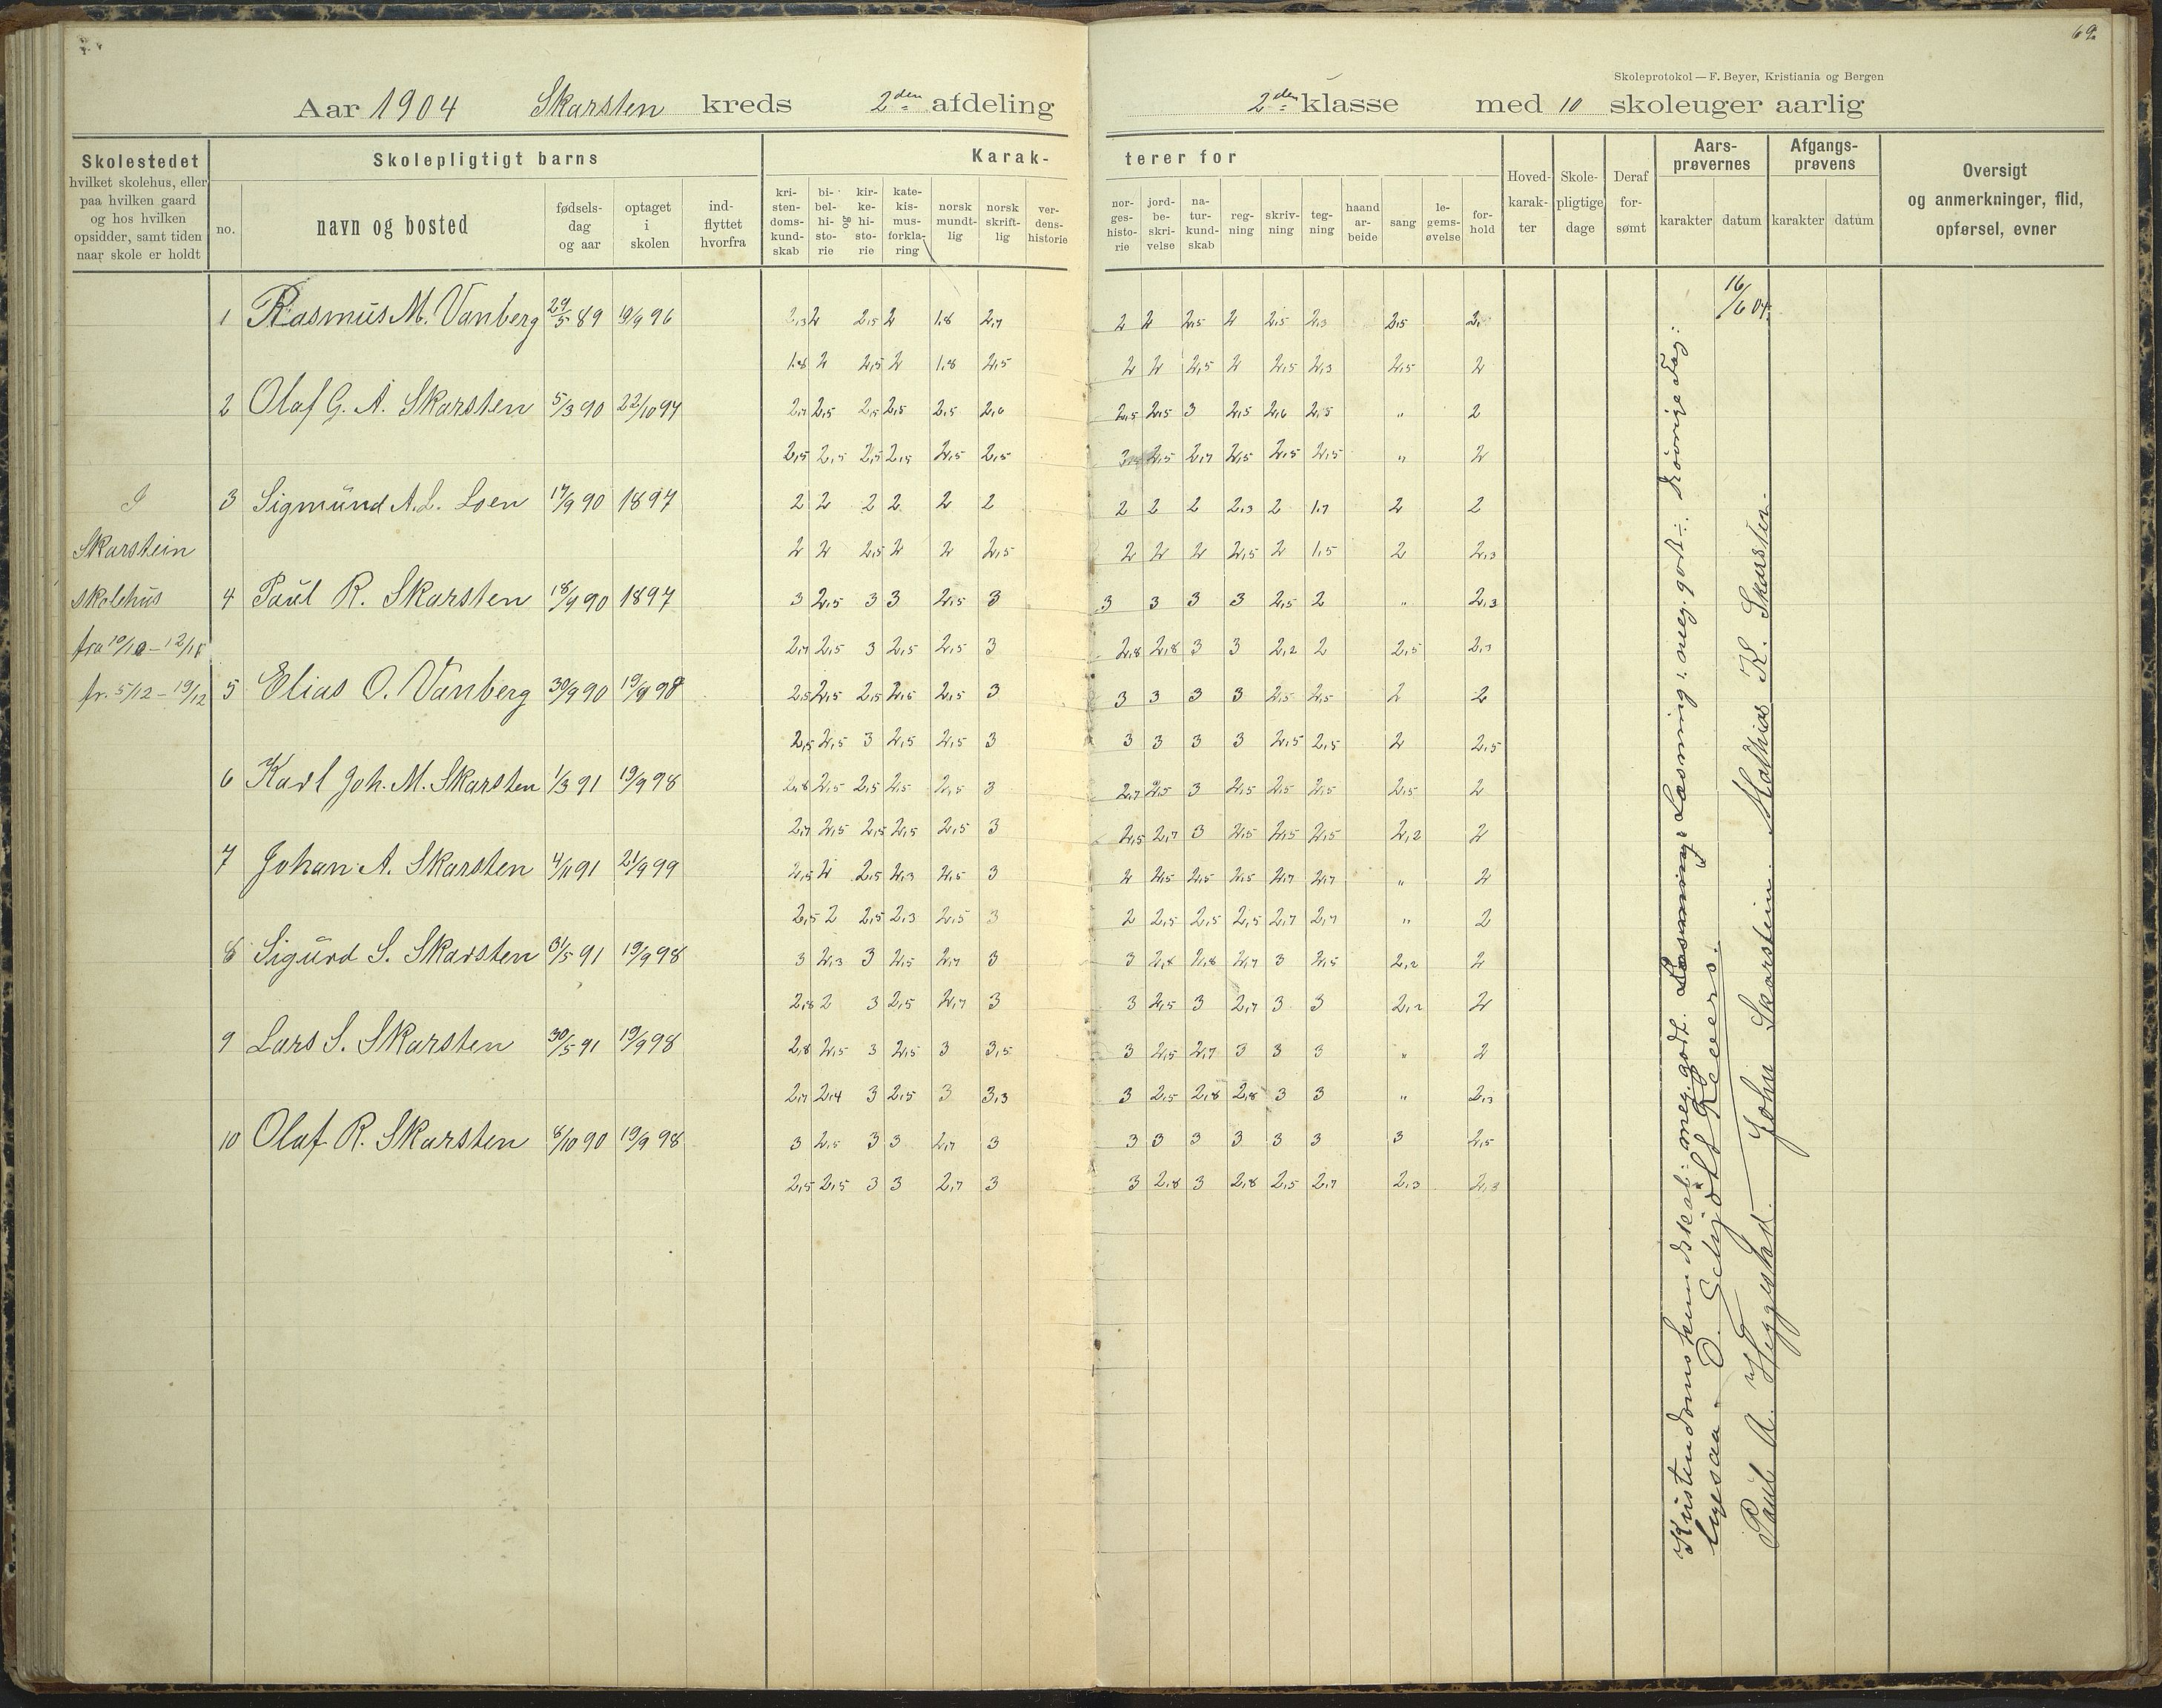 69.
Skoleprotokol — F. Beyer, Kristiania og Bergen
Aar 1904 Skarsten kreds 2den afdeling 2den klasse med 10 skoleuger aarlig
Skolestedet
hvilket skolehus, eller
paa hvilken gaard
og hos hvilken
opsidder, samt tiden
naar skole er holdt
Skolepligtigt barns
no.
navn og bosted
fødsels-
dag
og aar
optaget
i
skolen
ind-
flyttet
hvorfra
Karak-
terer for
kri-
sten-
doms-
kund-
skab
bi-
bel-
hi-
sto-
rie
og
kir-
ke-
hi-
sto-
rie
kate-
kis-
mus-
forkla-
ring
norsk
mundt-
lig
norsk
skrift-
lig
ver-
dens-
historie
nor-
ges-
histo-
rie
jord-
be-
skri-
velse
na-
tur-
kund-
skab
reg-
ning
skriv-
ning
teg-
ning
haand
ar-
beide
sang
le-
gems-
øvelse
for-
hold
Hoved-
karak-
ter
Skole-
pligtige
dage
Deraf
for-
sømt
Aars-
prøvernes
karakter
datum
Afgangs-
prøvens
karakter
datum
Oversigt
og anmerkninger, flid,
opførsel, evner
16/6 04.
1 Rasmus M. Vanberg 29/5 89 19/9 96 2,3 2 2,5 2 1,8 2,7 2 2 2,5 2 2,5 2,3 2,5 2
1,8 2 2,5 2 1,8 2,5 2 2 2,5 2 2,5 2,3 2,5 2
2 Olaf G. A. Skarsten 5/3 90 22/10 97 2,7 2,5 2,5 2,5 2,5 2,6 2,5 2,5 3 2,5 2,6 2,5 " 2
2,5 2,5 2,5 2,5 2,5 2,5 3 2,5 2,7 2,5 2,5 2,5 " 2
I
3 Sigmund A. L. Loen 17/9 90 1897 2 2 2 2 2 2 2 2 2 2,3 2 1,7 2 2
Skarstein
2 2 2,5 2 2 2,5 2 2 2 2,5 2 1,5 2 2,3
skolehus
4 Paul R. Skarsten 18/9 90 1897 3 2,5 3 3 2,5 3 3 3 3 3 2,5 2 " 2,3
fra 10/10 – 12/11
2,7 2,5 3 2,5 2,5 3 2,8 2,8 3 3 2,2 2 2,5 2,7
fr. 5/12 – 19/12
5 Elias O. Vanberg 30/9 90 19/9 98 2,5 2,5 2,5 2,5 2,5 3 3 3 3 3 2,5 2,5 2 2
2,5 2,5 3 2,5 2,5 3 3 3 3 3 2,5 2,5 2 2,5
6 Karl Joh. M. Skarsten 1/3 91 19/9 98 2,8 2,5 2,5 2,5 2,5 3 2,7 2,5 3 2,5 2,5 2,5 2,5 2
2,7 2,5 2,5 2,5 2,5 3 2,5 2,7 3 2,5 2,5 2,5 2,2 2
7 Johan A. Skarsten 4/11 91 21/9 99 2,5 2 2,5 2,3 2,5 3 2 2,5 2,5 2,5 2,7 2,7 " 2
2,5 2 2,5 2,3 2,5 3 2 2,5 2,5 2,5 2,7 2,7 " 2
8 Sigurd S. Skarsten 31/5 91 19/9 98 3 2,3 3 2,5 2,7 3 3 2,8 2,8 2,7 3 2,5 2,2 2
2,8 2 3 2,5 2,7 3 3 2,5 3 2,7 3 3 2,2 2
9 Lars S. Skarsten 30/5 91 19/9 98 2,8 2,5 3 2,5 3 3,5 3 2,5 2,7 3 3 3 " 2
2,7 2,4 3 2,5 3 3,3 3 2,5 2,8 2,8 3 3 " 2,3
10 Olaf R. Skarsten 8/10 90 19/9 98 3 2,5 3 3 2,7 3 3 3 3 3 3 3 3 2,5
2,5 2,5 3 3 2,7 3 3 2,8 3 2,8 2,5 2,7 2,3 2,3
Kristendomskundskab: meg. godt. Læsning: Læsning: meg. godt ÷. I øvrige Fag:
ligesaa.
Paul A. Heggestad. John Skarstein. Mathias K. Skarsten.